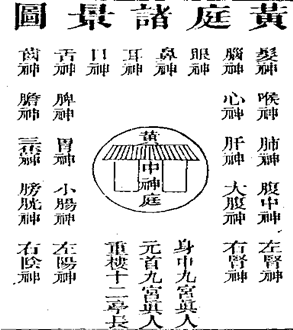 黃庭諸景圖
髮神
腦神
眼神
鼻神
耳神
口神
舌神
齒神
喉神
心神
脾神
膽神
肺神
肝神
胃神
三焦神
腹中神
大腹神
小腸神
膀胱神
左腎神
右腎神
左陽神
右陰神
黃
中神
庭
身中九宮眞人
元首九宮眞人
重樓十二亭長